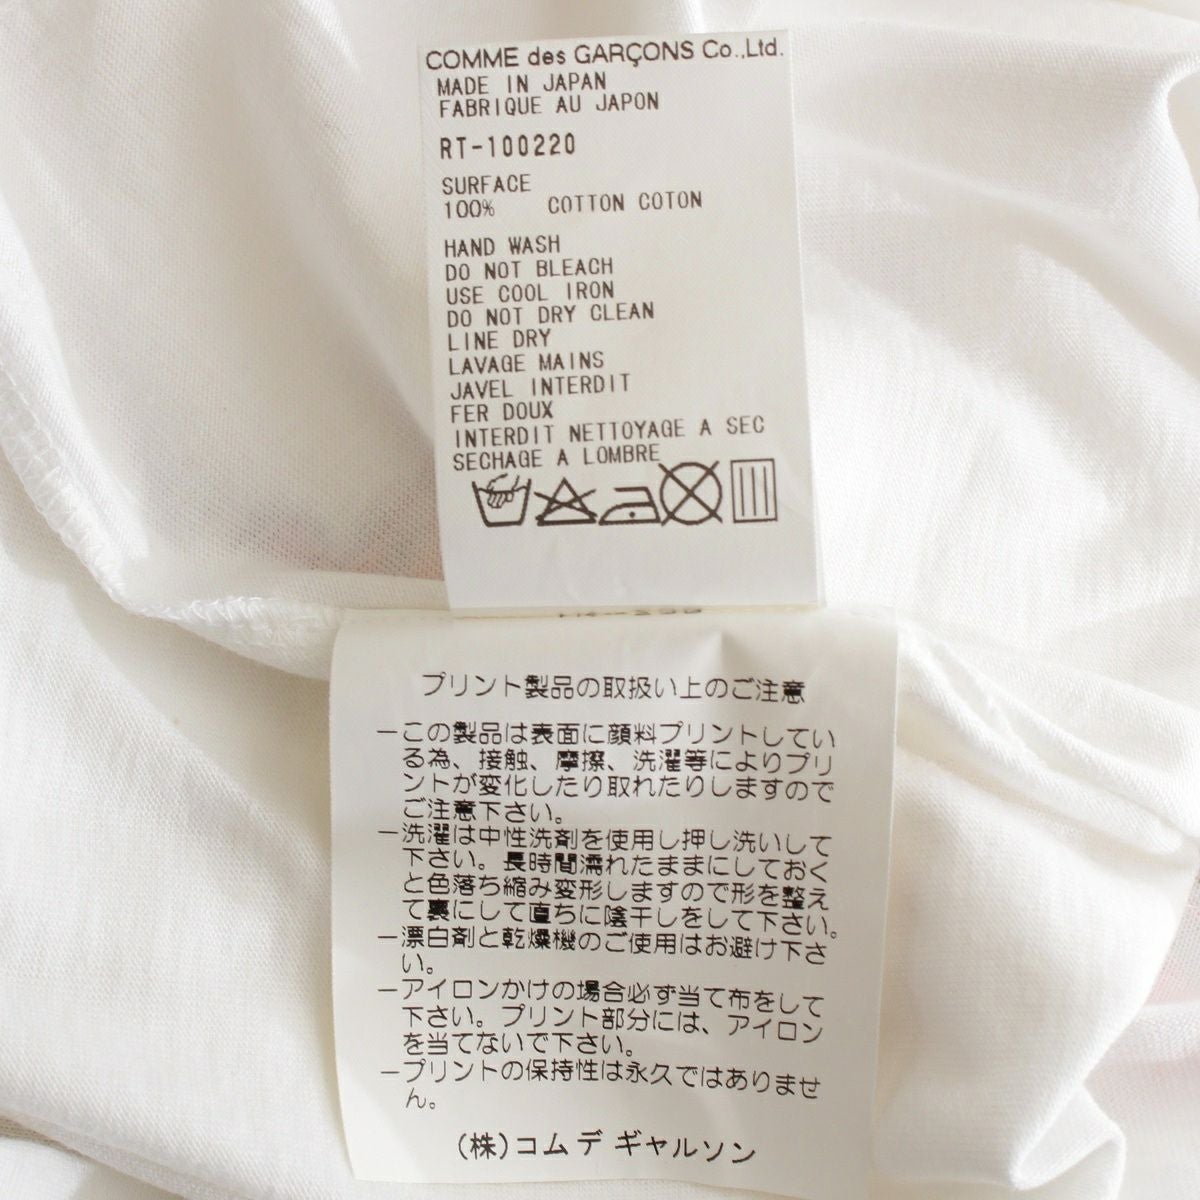 COMME des GARÇONS Co.,Ltd.
MADE IN JAPAN
FABRIQUE AU JAPON
RT-100220
SURFACE
100% COTTON COTON
HAND WASH
DO NOT BLEACH
USE COOL IRON
DO NOT DRY CLEAN
LINE DRY
LAVAGE MAINS
JAVEL INTERDIT
FER DOUX
INTERDIT NETTOYAGE A SEC
SECHAGE A LOMBRE
プリント製品の取扱い上のご注意
ーこの製品は表面に顔料プリントしてい
る為、接触、摩擦、洗濯等によりプリ
ントが変化したり取れたりしますので
ご注意下さい。
ー洗濯は中性洗剤を使用し押し洗いして
下さい。長時間濡れたままにしておく
と色落ち縮み変形しますので形を整え
て裏にして直ちに陰干しをして下さい。
ー漂白剤と乾燥機のご使用はお避け下さ
い。
ーアイロンかけの場合必ず当て布をして
下さい。プリント部分には、アイロン
を当てないで下さい。
ープリントの保持性は永久ではありませ
ん。
(株)コム デ ギャルソン